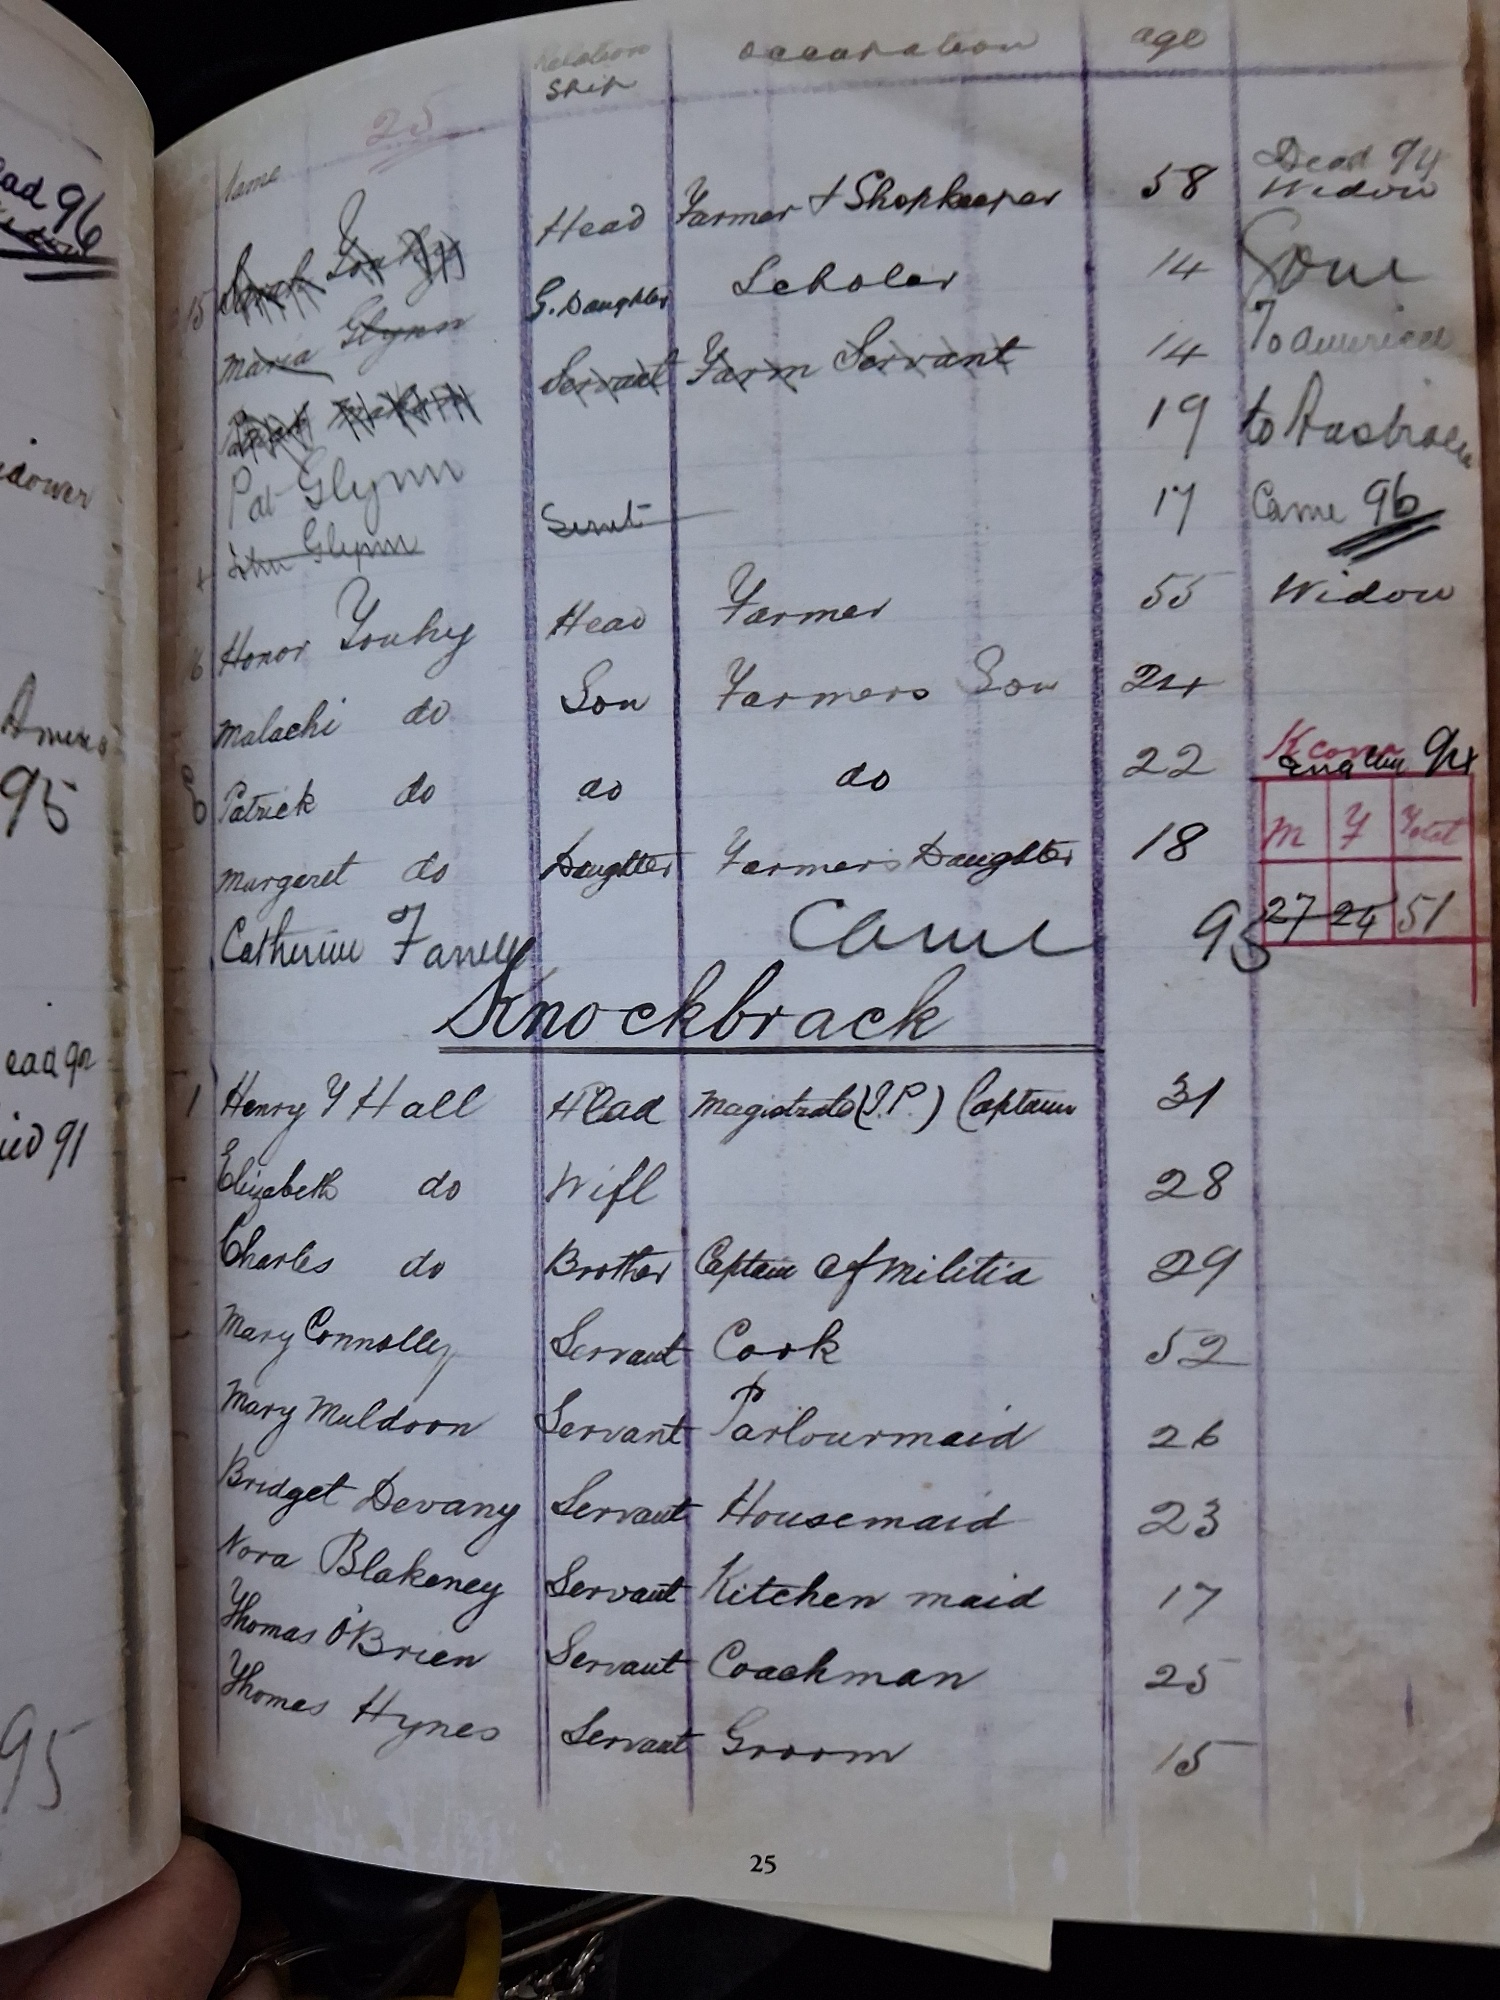 ead 96
dower
95
ead 92
ied 91
95
25
Name Relation ship occupation age
15 Sarah Youhy Head Farmer + Shopkeeper 58 Dead 94 Widow
Maria Glynn G. Daughter Scholar 14 Gone
Servant Farm Servant 14 To America
Pat Glynn 19 to Australia
John Glynn Servt 17 Came 96
6 Honor Youhy Head Farmer 55 Widow
Malachi do Son Farmers Son 24
Patrick do do do 22 94
Margaret do Daughter Farmers Daughter 18
M F Total
27 24 51
Catherine Farrell Came 95
Knockbrack
1 Henry Y Hall Head Magistrate (J.P.) Captain 31
Elizabeth do Wife 28
Charles do Brother Captain of Militia 29
Mary Connolly Servant Cook 52
Mary Muldoon Servant Parlourmaid 26
Bridget Devany Servant Housemaid 23
Nora Blakeney Servant Kitchen maid 17
Thomas O'Brien Servant Coachman 25
Thomas Hynes Servant Groom 15
25